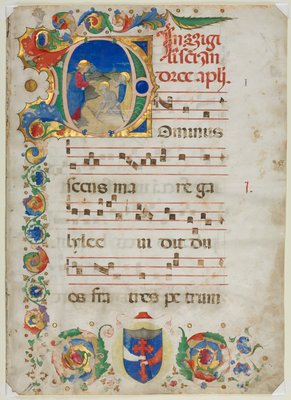 In vigi
li sci An
dree apli.
Dominus
secus ma re ga
lylee vi dit du
os fra tres pe trum